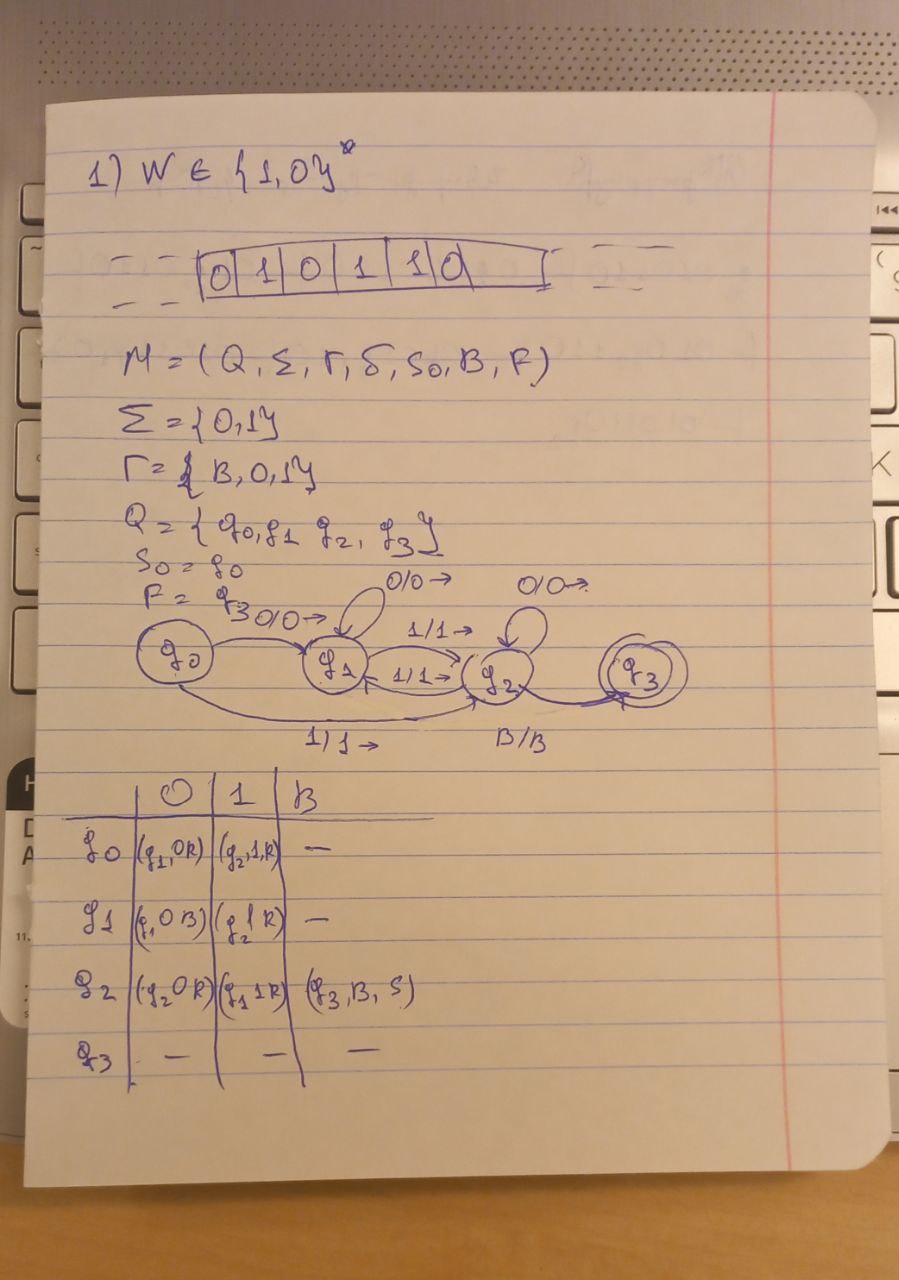 1) W ∈ {1,0}*
0 1 0 1 1 0
M = (Q, Σ, Γ, δ, S0, B, F)
Σ = {0,1}
Γ = { B, 0,1}
Q = { q0,q1 q2, q3}
S0 = q0
F = q3
0/0→
0/0→
0/0→
1/1→
q0
q1
1/1→
q2
q3
1/1→
B/B
0 1 B
q0 (q1,0R) (q2,1,R) —
q1 (q1 0 B) (q2 1 R) —
q2 (q2 0R) (q1 1R) (q3,B, S)
q3 — — —